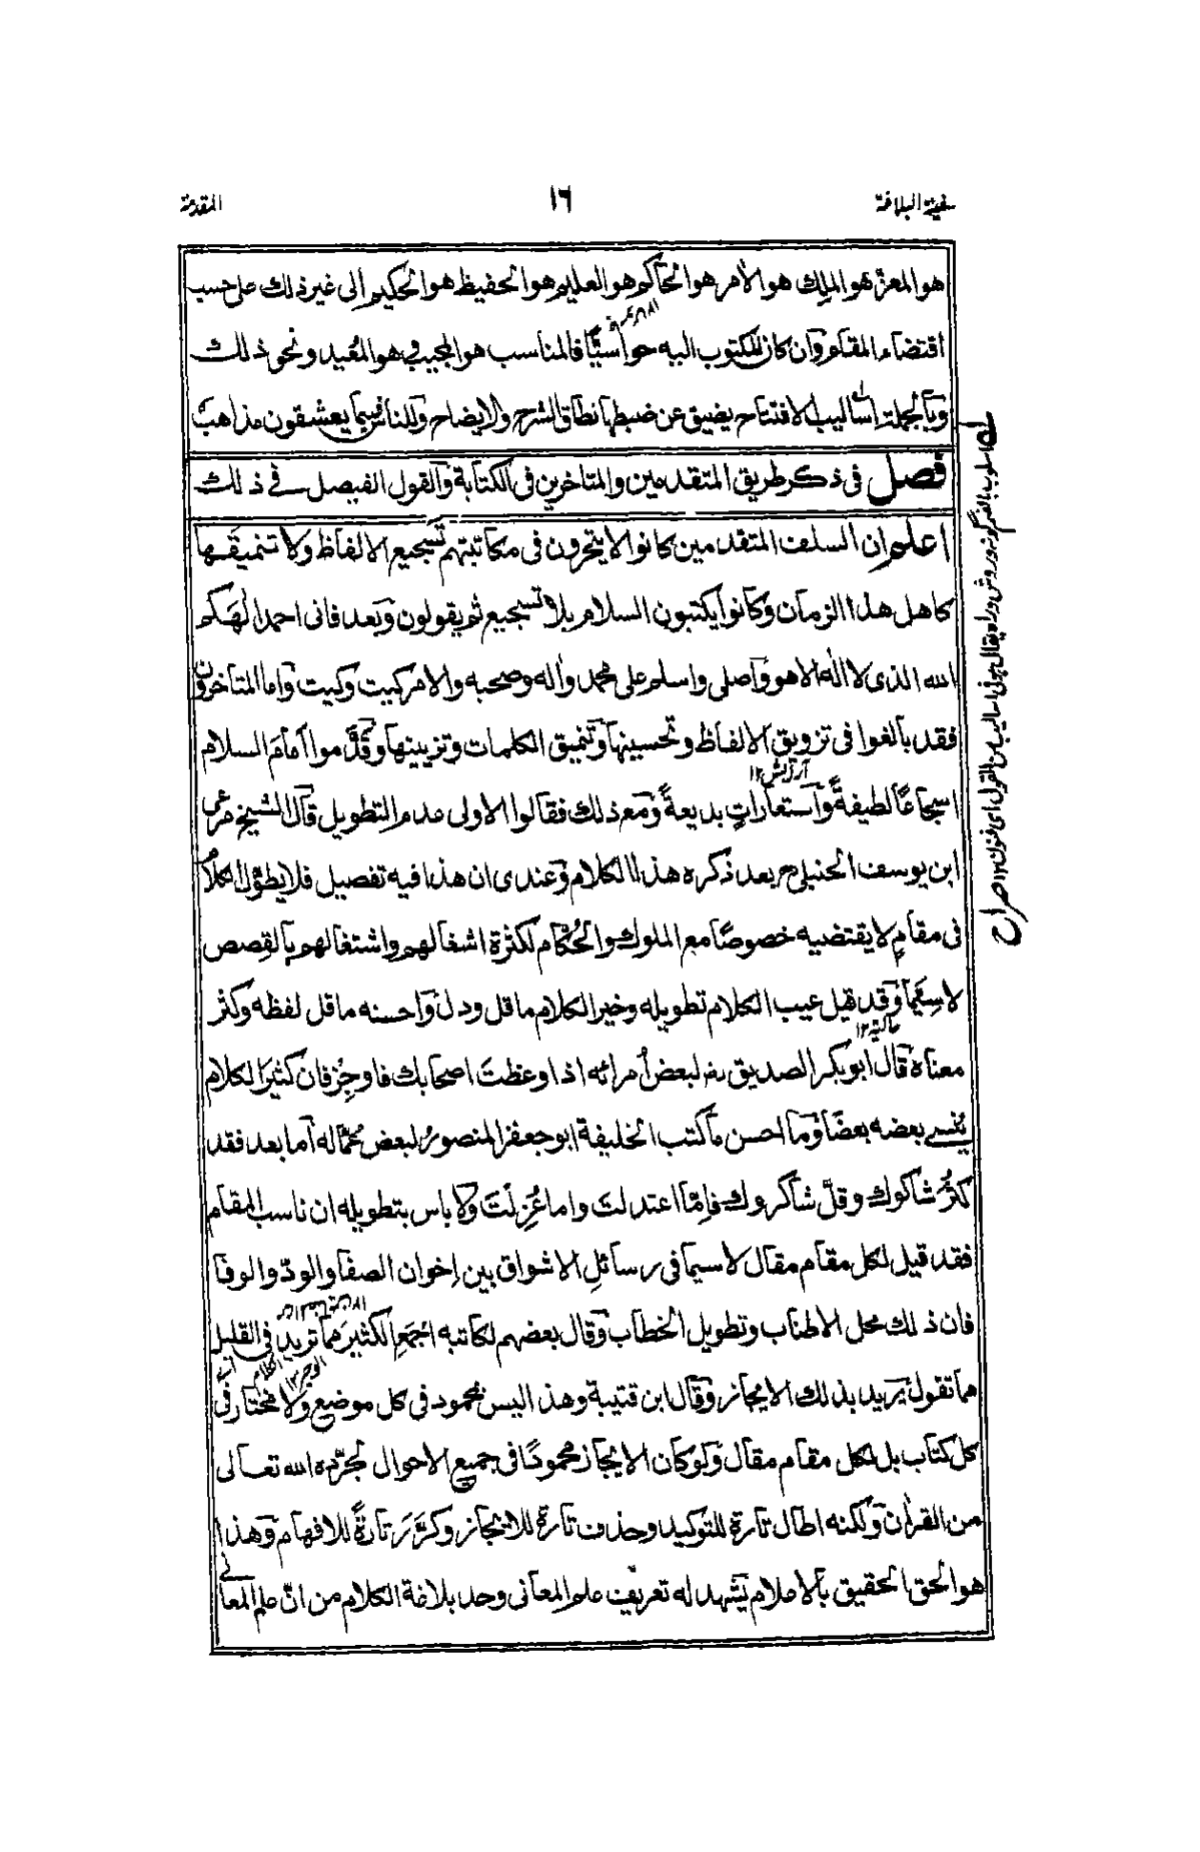 سفينة البلاغة
١٦
المقدمة
هو المعزّ هو الملك هو الآمر هو الحاكم هو العليم هو الحفيظ هو الحكيم الى غير ذلك على حسب
اقتضاء المقام وان كان المكتوب اليه فالمناسب هو المجيب هو المعيد ونحو ذلك
وبالجملة اساليب الافتتاح يضيق عن ضبطها نطاق الشرح والايضاح وللناس فيما يعشقون مذاهب
فصل فى ذكر طريق المتقدمين والمتاخرين فى الكتابة والقول الفيصل فى ذلك
اعلم ان السلف المتقدمين كانوا لا يتحرون فى مكاتبتهم تسجيع الالفاظ ولا تنميقها
كاهل هذا الزمان وكانوا يكتبون السلام بلا تسجيع ثم يقولون وبعد فانى احمد الهكم
الله الذى لا اله الا هو واصلى واسلم على محمد واله وصحبه والامر كيت وكيت واما المتاخرون
فقد بالغوا فى تزويق الالفاظ وتحسينها وتنميق الكلمات وتزيينها وقدّموا أمام السلام
آرايش ١٢
اسجاعًا لطيفةً واستعاراتٍ بديعةً ومع ذلك فقالوا الاولى عدم التطويل قال الشيخ مرعى
ابن يوسف الحنبلى بعد ذكره هذا الكلام وعندى ان هذا فيه تفصيل فلا يطوّل الكلام
فى مقامٍ لا يقتضيه خصوصًا مع الملوك والحُكّام لكثرة اشغالهم واشتغالهم بالقصص
لا سِيَّما وقد قيل عيب الكلام تطويله وخير الكلام ما قل ودل واحسنه ما قل لفظه وكثر
معناه قال ابو بكر الصديق رض لبعض أمرائه اذا وعظتَ اصحابك فاوجِز فان كثيرَ الكلام
يُنسى بعضه بعضًا وما احسن ما كتب الخليفة ابو جعفر المنصورُ لبعض عُمّاله أما بعد فقد
كثُر شاكوك وقلَّ شاكروك فإمّا اعتدلت واما عُزِلْتَ ولا باس بتطويله ان ناسب المقام
فقد قيل لكل مقام مقال لا سيما فى رسائل الاشواق بين إخوان الصفا والودّ والوفا
فان ذلك محل الاطناب وتطويل الخطاب وقال بعضهم لكاتبه اجمَعِ الكثيرَ مما تريد فى القليل
مما تقول يريد بذلك الايجاز وقال ابن قتيبة وهذا ليس بمحمود فى كل موضع ولا مختار فى
كل كتاب بل لكل مقام مقال ولو كان الايجاز محمودًا فى جميع الاحوال لجرّده الله تعالى
من القرأن ولكنه اطال تارة للتوكيد وحذف تارة للايجاز وكرَّرَ تارةً للافهام وهذا
هو الحق الحقيق بالاعلام يشهد له تعريف علم المعانى وحد بلاغة الكلام من انّ علم المعانى